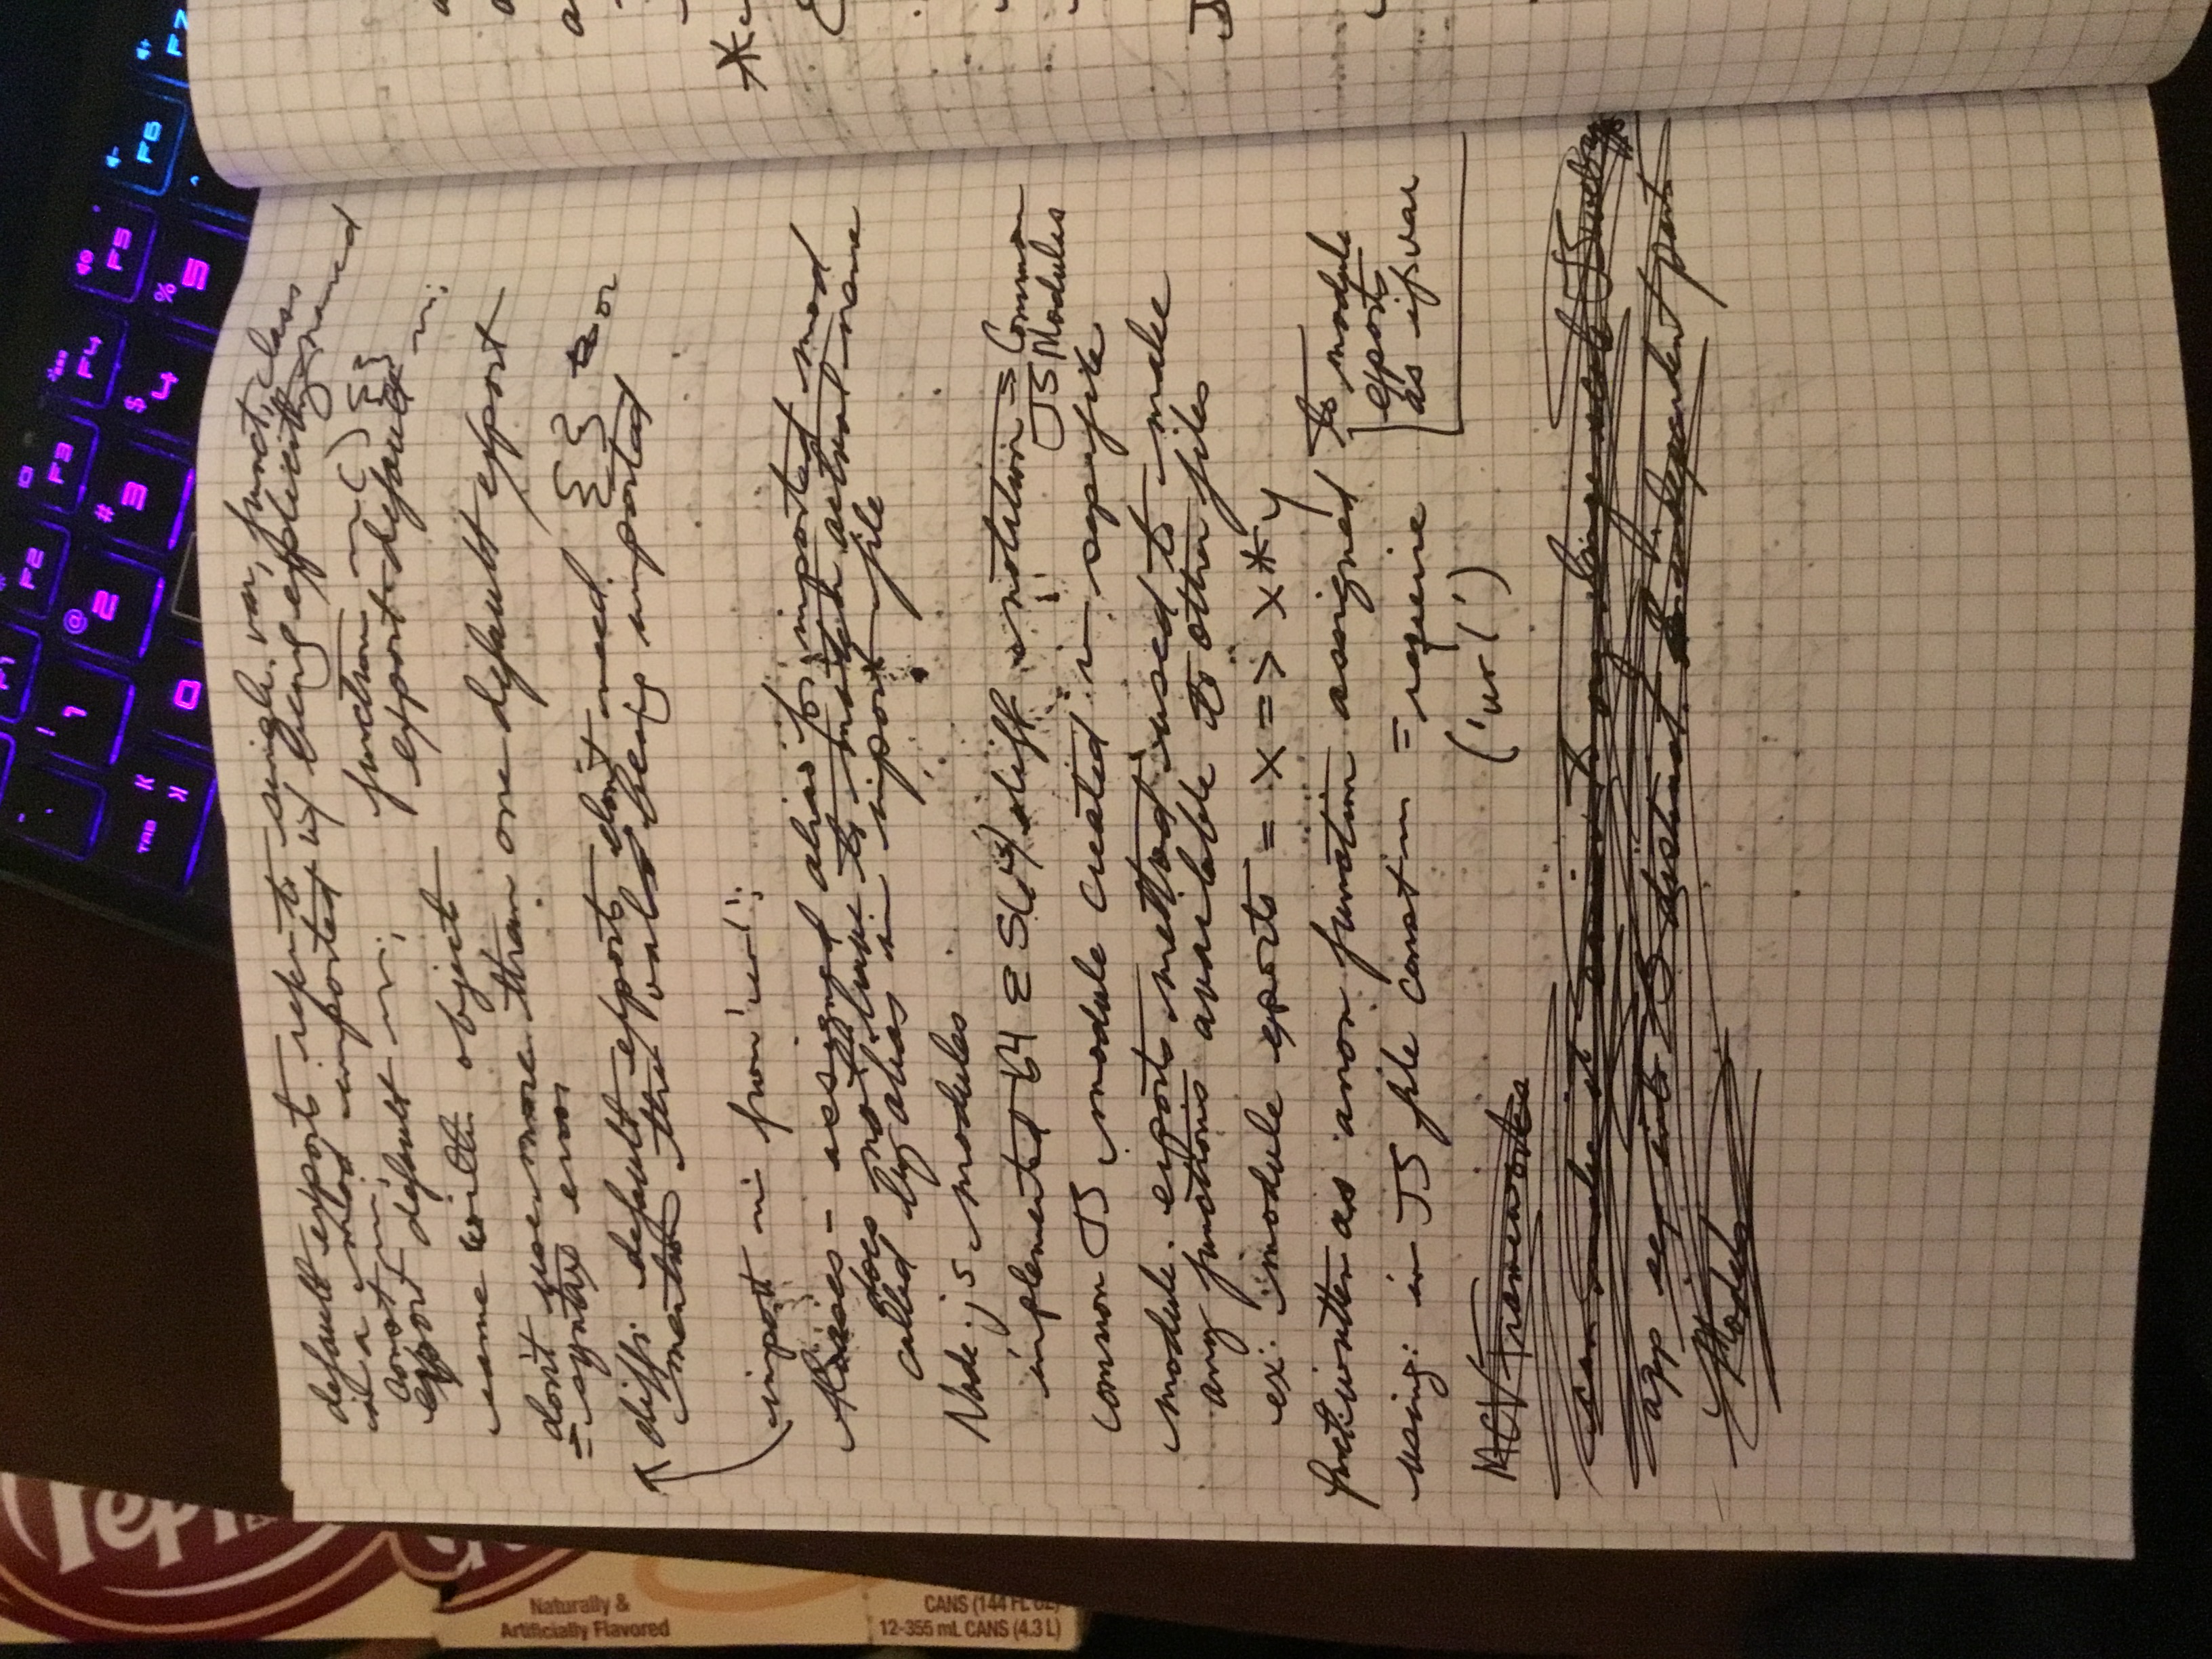 F1 F2 F3 F4 F5 F6 F7
! 1 @ 2 # 3 $ 4 % 5 ^
TAB Q
Naturally &
Artificially Flavored
12-355 mL CANS (4.3 L)
default exports refer to single var, funct, class
in a mod imported w/ being explicitly named
const ~;
export default ~;
function ~( ) { }
export default ~;
same with object
don't use more than one default export
= syntax error
diff: default exports don't need { } or
mention the val being imported
import ~ from 'url';
Aliases - assigned alias for imported mod
does not have to match actual name
called by alias in import file
Node.js modules
implemented b4 ES6 w/ diff notation = Common
JS Modules
common JS module created in sep file
module.exports method used to make
any functions available to other files
ex: module exports = x => x*y
funct written as anon function assigned to module
exports
as if var
using: in JS file const ~ = require
('url')
MCV Frameworks
can make it easier to org large scale JS web apps
app sep into 3 distinct independent parts
Models